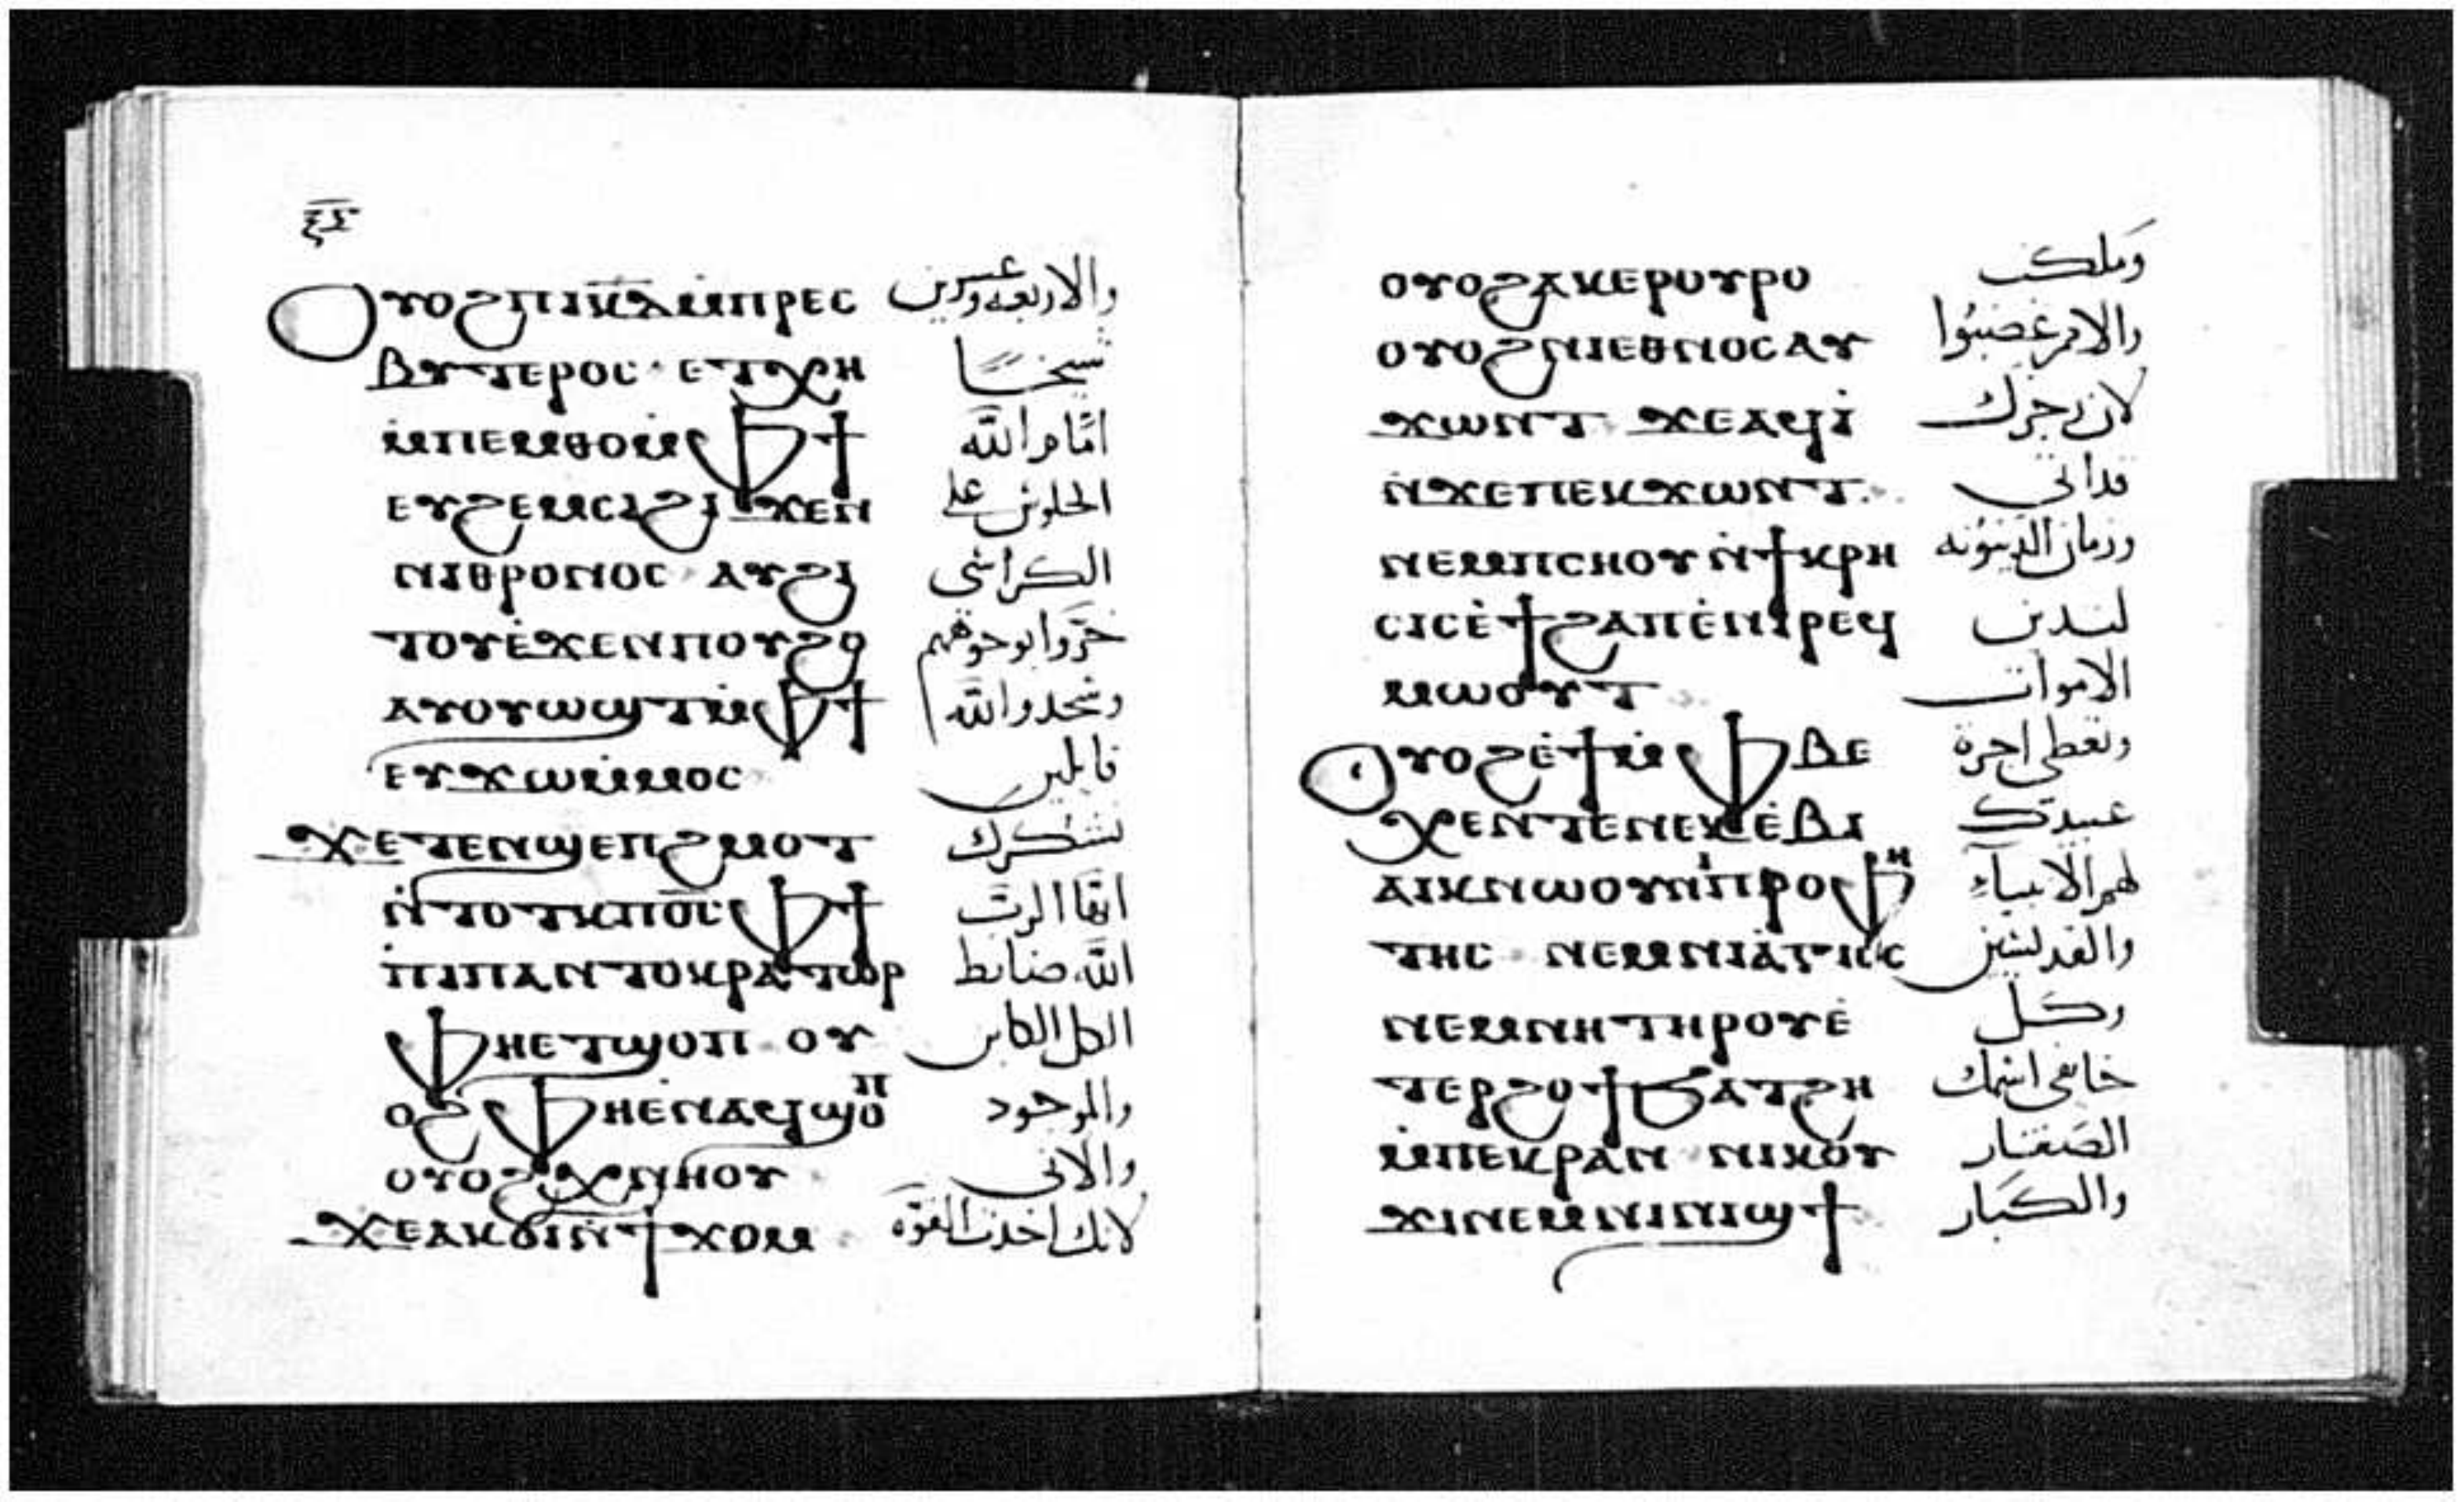 ⲝⲋ
Ⲟⲩⲟϩ ⲡⲓⲕ̅ⲇ̅ ⲙ̀ⲡⲣⲉⲥ والاربعه وعشرين
ⲃⲩⲧⲉⲣⲟⲥ ⲉⲧⲭⲏ شيخا
ⲙ̀ⲡⲉⲙⲑⲟ ⲙ̀ⲫϯ امام الله
ⲉⲩϩⲉⲙⲥⲓ ϩⲓϫⲉⲛ الجلوس على
ⲛⲓⲑⲣⲟⲛⲟⲥ ⲁⲩϩⲓ الكراسي
ⲧⲟⲩ ⲉ̀ϫⲉⲛ ⲡⲟⲩϩⲟ خروا بوجوههم
ⲁⲩⲟⲩⲱϣⲧ ⲙ̀ⲫϯ وسجدوا لله
ⲉⲩϫⲱ ⲙ̀ⲙⲟⲥ قايلين
ϫⲉ ⲧⲉⲛϣⲉⲡϩⲙⲟⲧ نشكرك
ⲛ̀ⲧⲟⲧⲕ ⲡⲟ̅ⲥ̅ ⲫϯ ايها الرب
ⲡⲓⲡⲁⲛⲧⲟⲕⲣⲁⲧⲱⲣ الله ضابط
ⲫⲏⲉⲧϣⲟⲡ ⲟⲩ الكل الكاين
ⲟϩ ⲫⲏⲉ̀ⲛⲁϥϣⲟⲡ والموجود
ⲟⲩⲟϩ ϥ̀ⲛⲏⲟⲩ والاتي
ϫⲉ ⲁⲕϭⲓ ⲛ̀ϯϫⲟⲙ لانك اخذت القوه
ⲟⲩⲟϩ ⲁⲕⲉⲣⲟⲩⲣⲟ وملكت
ⲟⲩⲟϩ ⲛⲓⲉⲑⲛⲟⲥ ⲁⲩ والامم غضبوا
ϫⲱⲛⲧ ϫⲉ ⲁϥⲓ̀ لان رجزك
ⲛ̀ϫⲉ ⲡⲉⲕϫⲱⲛⲧ قد اتى
ⲛⲉⲙ ⲡⲥⲏⲟⲩ ⲛ̀ϯⲕⲣⲏ وزمان الدينونه
ⲥⲓⲥ ⲉ̀ϯϩⲁⲡ ⲉ̀ⲛⲓⲣⲉϥ لتدين
ⲙⲱⲟⲩⲧ الاموات
Ⲟⲩⲟϩ ⲉ̀ϯ ⲙ̀ⲫⲃⲉ وتعطي اجرة
ⲭⲉ ⲛ̀ⲧⲉ ⲛⲉⲕⲉ̀ⲃⲓ عبيدك
ⲁⲓⲕ ⲛⲱⲟⲩ ⲛⲓⲡⲣⲟⲫⲏ لهم الانبياء
ⲧⲏⲥ ⲛⲉⲙ ⲛⲓⲁ̀ⲅⲓⲟⲥ والقديسين
ⲛⲉⲙ ⲛⲏ ⲧⲏⲣⲟⲩ ⲉ̀ وكل
ⲧⲉⲣϩⲟϯ ϧⲁⲧϩⲏ خايفي اسمك
ⲙ̀ⲡⲉⲕⲣⲁⲛ ⲛⲓⲕⲟⲩ الصغار
ϫⲓ ⲛⲉⲙ ⲛⲓⲛⲓϣϯ والكبار